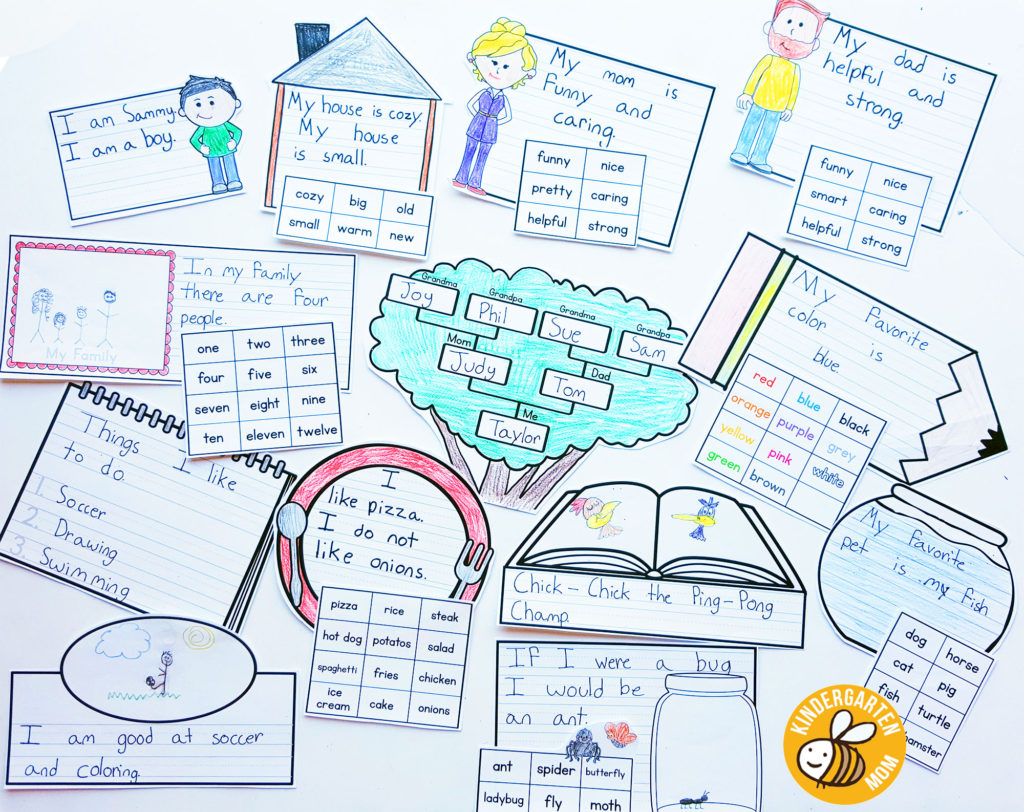 I am Sammy.
I am a boy.
My house is cozy.
My house
is small.
cozy big old
small warm new
My mom is
Funny and
caring.
funny nice
pretty caring
helpful strong
My dad is
helpful and
strong.
funny nice
smart caring
helpful strong
In my family
there are four
people.
My Family
one two three
four five six
seven eight nine
ten eleven twelve
Grandma Grandpa Grandma Grandpa
Joy Phil Sue Sam
Mom Dad
Judy Tom
Me
Taylor
My favorite
color is
blue.
red blue black
orange purple grey
yellow pink white
green brown
Things I like
to do.
1. Soccer
2. Drawing
3. Swimming
I
like pizza.
I do not
like onions.
pizza rice steak
hot dog potatos salad
spaghetti fries chicken
ice cream cake onions
Chick-Chick the Ping-Pong
Champ
My favorite
pet is my fish
dog horse
cat pig
fish turtle
hamster
I am good at soccer
and coloring.
If I were a bug
I would be
an ant.
ant spider butterfly
ladybug fly moth
KINDERGARTEN
MOM